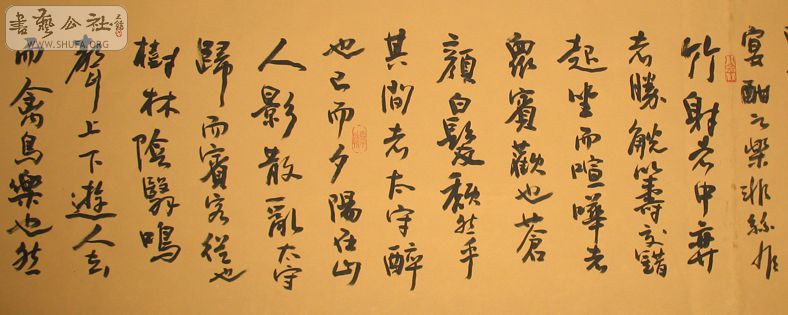 宴酣之樂非絲非
竹射者中弈
者勝觥籌交錯
起坐而喧嘩者
衆賓歡也蒼
顏白髮頹然乎
其間者太守醉
也已而夕陽在山
人影散亂太守
歸而賓客從也
樹林陰翳鳴
聲上下遊人去
而禽鳥樂也然
書藝公社
WWW.SHUFA.ORG